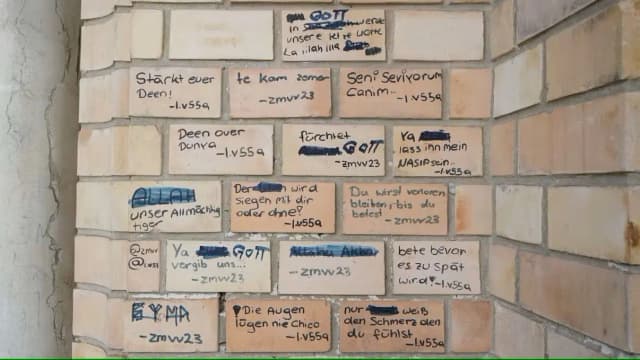 GOTT
in werde
unsere letzte worte
La ..ilahilla
Stärkt euer
Deen!
-l.v55a
te kam zemer
-zmvv23
Seni Seviyorum
Canim..
-l.v55a
Deen over
Dunya
-l.v55a
fürchtet
GOTT
-zmvv23
Ya
lass ihn mein
NASIP sein..
-l.v55a
ALLAH
unser Allmächtig
tiger
Der wird
siegen mit dir
oder ohne?
-l.v55a
Du wirst verloren
bleiben, bis du
betest
-zmvv23
@zmvv
Ya GOTT
vergib uns...
-zmvv23
Allahu Akbar
-zmvv23
bete bevor
es zu spät
wird!
-l.v55a
-zmvv23
Die Augen
lügen nie Chico
-l.v55a
nur weiß
den Schmerz den
du fühlst
-l.v55a